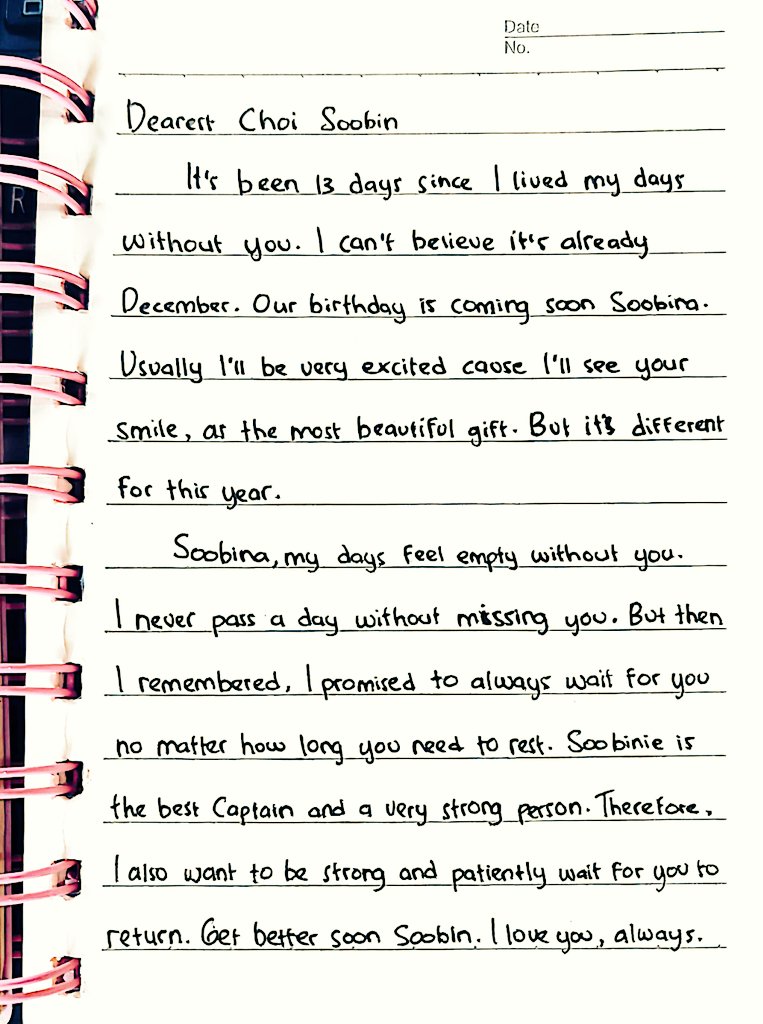 Date
No.
Dearest Choi Soobin
It's been 13 days since I lived my days
without you. I can't believe it's already
December. Our birthday is coming soon Soobina.
Usually I'll be very excited cause I'll see your
smile, as the most beautiful gift. But it's different
for this year.
Soobina, my days feel empty without you.
I never pass a day without missing you. But then
I remembered, I promised to always wait for you
no matter how long you need to rest. Soobinie is
the best Captain and a very strong person. Therefore,
I also want to be strong and patiently wait for you to
return. Get better soon Soobin. I love you, always.
R